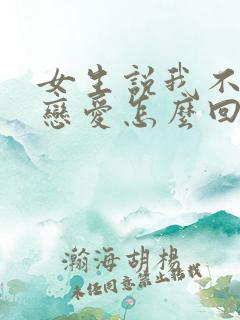 女生説我不
戀愛怎麼回
瀚海胡楊
未經同意禁止轉載